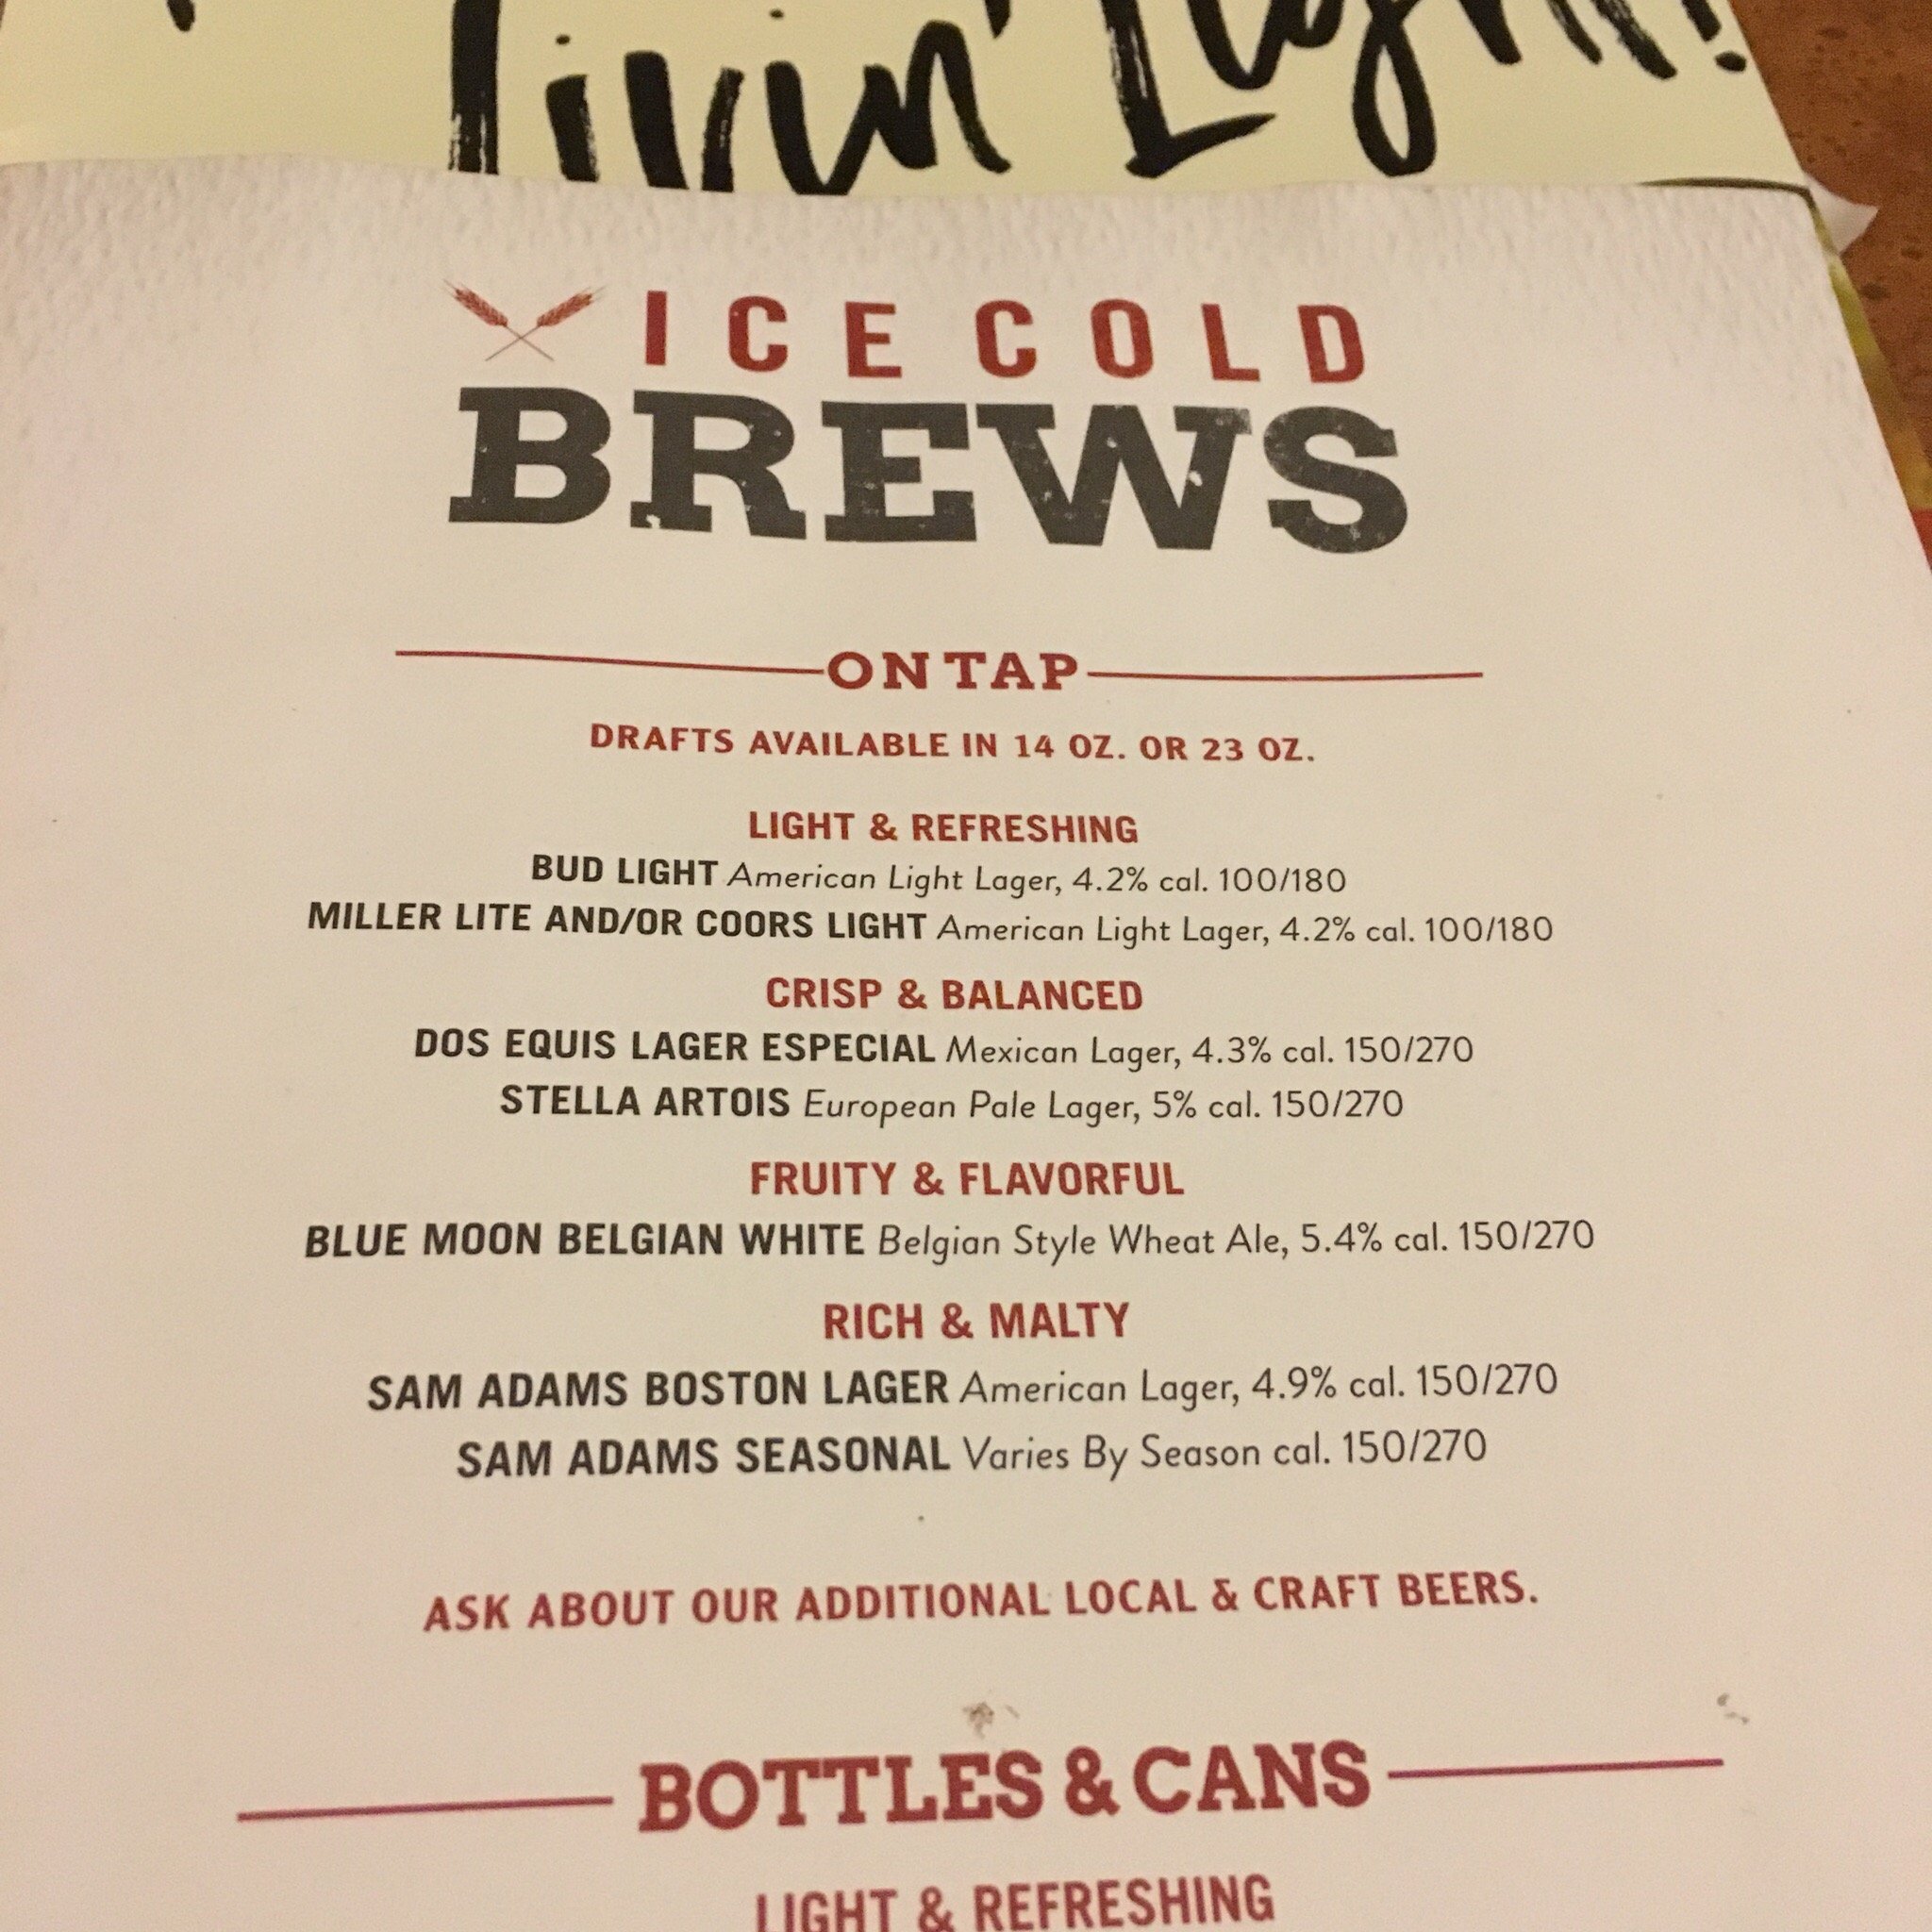 livin' Light!
ICE COLD
BREWS
ON TAP
DRAFTS AVAILABLE IN 14 OZ. OR 23 OZ.
LIGHT & REFRESHING
BUD LIGHT American Light Lager, 4.2% cal. 100/180
MILLER LITE AND/OR COORS LIGHT American Light Lager, 4.2% cal. 100/180
CRISP & BALANCED
DOS EQUIS LAGER ESPECIAL Mexican Lager, 4.3% cal. 150/270
STELLA ARTOIS European Pale Lager, 5% cal. 150/270
FRUITY & FLAVORFUL
BLUE MOON BELGIAN WHITE Belgian Style Wheat Ale, 5.4% cal. 150/270
RICH & MALTY
SAM ADAMS BOSTON LAGER American Lager, 4.9% cal. 150/270
SAM ADAMS SEASONAL Varies By Season cal. 150/270
ASK ABOUT OUR ADDITIONAL LOCAL & CRAFT BEERS.
BOTTLES & CANS
LIGHT & REFRESHING